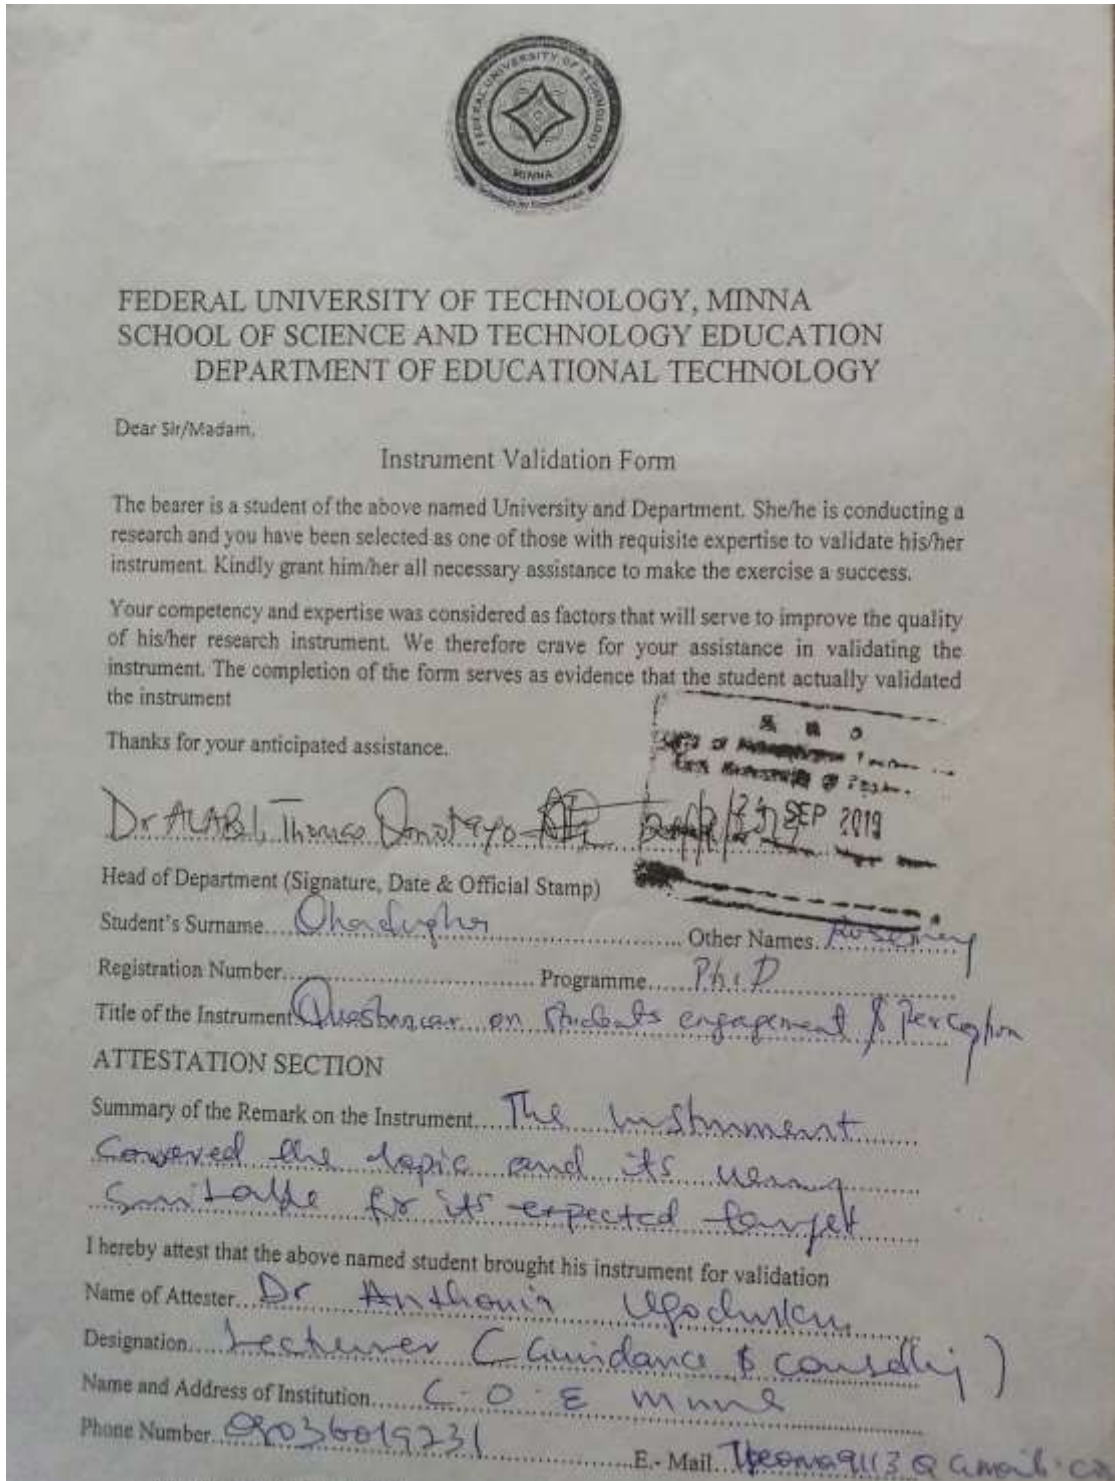 FEDERAL UNIVERSITY OF TECHNOLOGY
MINNA
FEDERAL UNIVERSITY OF TECHNOLOGY, MINNA
SCHOOL OF SCIENCE AND TECHNOLOGY EDUCATION
DEPARTMENT OF EDUCATIONAL TECHNOLOGY
Dear Sir/Madam,
Instrument Validation Form
The bearer is a student of the above named University and Department. She/he is conducting a
research and you have been selected as one of those with requisite expertise to validate his/her
instrument. Kindly grant him/her all necessary assistance to make the exercise a success.
Your competency and expertise was considered as factors that will serve to improve the quality
of his/her research instrument. We therefore crave for your assistance in validating the
instrument. The completion of the form serves as evidence that the student actually validated
the instrument
Thanks for your anticipated assistance.
Dr ALABI, Thomas
24 SEP 2019
Head of Department (Signature, Date & Official Stamp)
Student's Surname Other Names Rosemary
Registration Number Programme Ph.D
Title of the Instrument on students engagement & Perception
ATTESTATION SECTION
Summary of the Remark on the Instrument The Instrument
Covered the topic and its
Suitable for its expected target
I hereby attest that the above named student brought his instrument for validation
Name of Attester Dr Anthonia
Designation Lecturer (Guidance &
Name and Address of Institution C.O.E
Phone Number E.- Mail